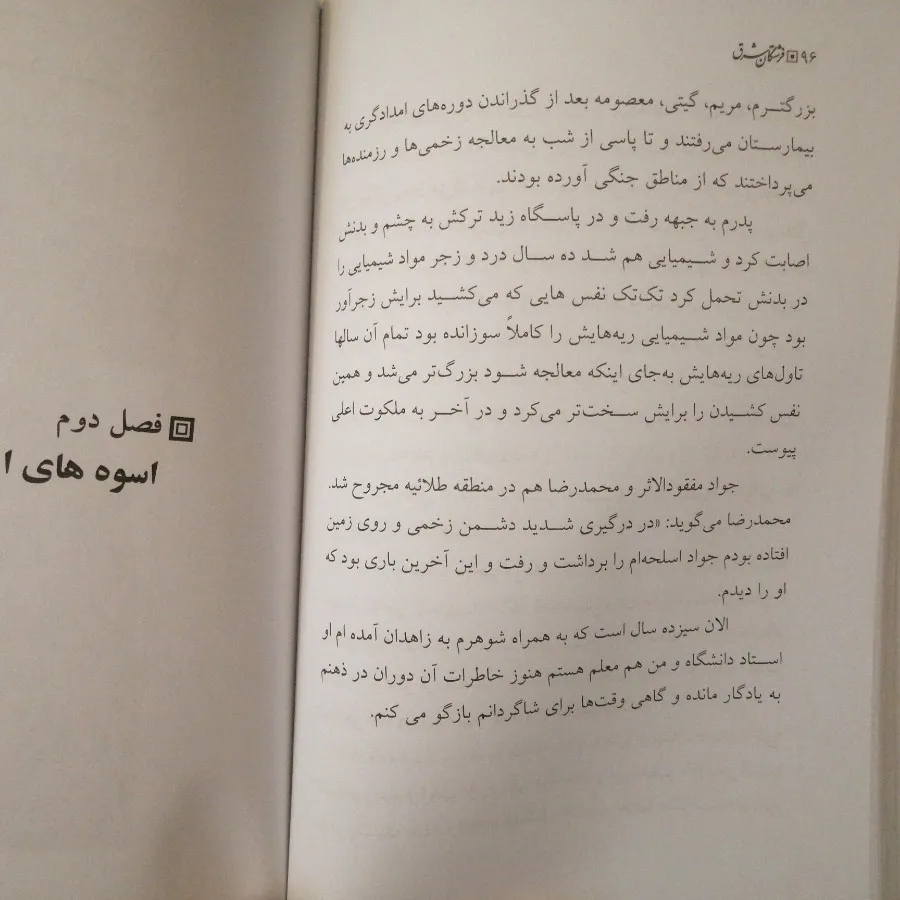 ۹۶ فرشتگان شرق
بزرگترم، مریم، گیتی، معصومه بعد از گذراندن دوره‌های امدادگری به
بیمارستان می‌رفتند و تا پاسی از شب به معالجه زخمی‌ها و رزمنده‌ها
می‌پرداختند که از مناطق جنگی آورده بودند.
پدرم به جبهه رفت و در پاسگاه زید ترکش به چشم و بدنش
اصابت کرد و شیمیایی هم شد ده سال درد و زجر مواد شیمیایی را
در بدنش تحمل کرد تک‌تک نفس هایی که می‌کشید برایش زجرآور
بود چون مواد شیمیایی ریه‌هایش را کاملاً سوزانده بود تمام آن سالها
تاول‌های ریه‌هایش به‌جای اینکه معالجه شود بزرگ‌تر می‌شد و همین
نفس کشیدن را برایش سخت‌تر می‌کرد و در آخر به ملکوت اعلی
پیوست.
جواد مفقودالاثر و محمدرضا هم در منطقه طلائیه مجروح شد.
محمدرضا می‌گوید: «در درگیری شدید دشمن زخمی و روی زمین
افتاده بودم جواد اسلحه‌ام را برداشت و رفت و این آخرین باری بود که
او را دیدم.
الان سیزده سال است که به همراه شوهرم به زاهدان آمده ام او
استاد دانشگاه و من هم معلم هستم هنوز خاطرات آن دوران در ذهنم
به یادگار مانده و گاهی وقت‌ها برای شاگردانم بازگو می کنم.
فصل دوم
اسوه های